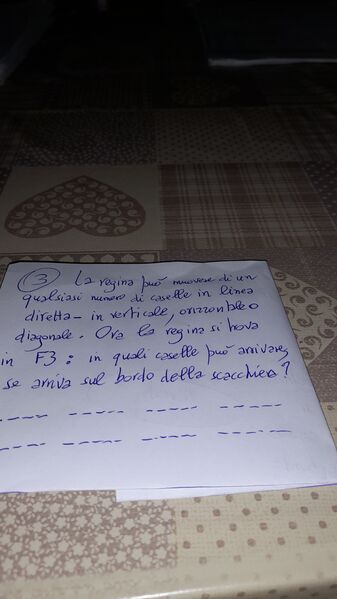 3 La regina può muovere di un
qualsiasi numero di caselle in linea
diretta - in verticale, orizzontale o
diagonale. Ora la regina si trova
in F3: in quali caselle può arrivare,
se arriva sul bordo della scacchiera?